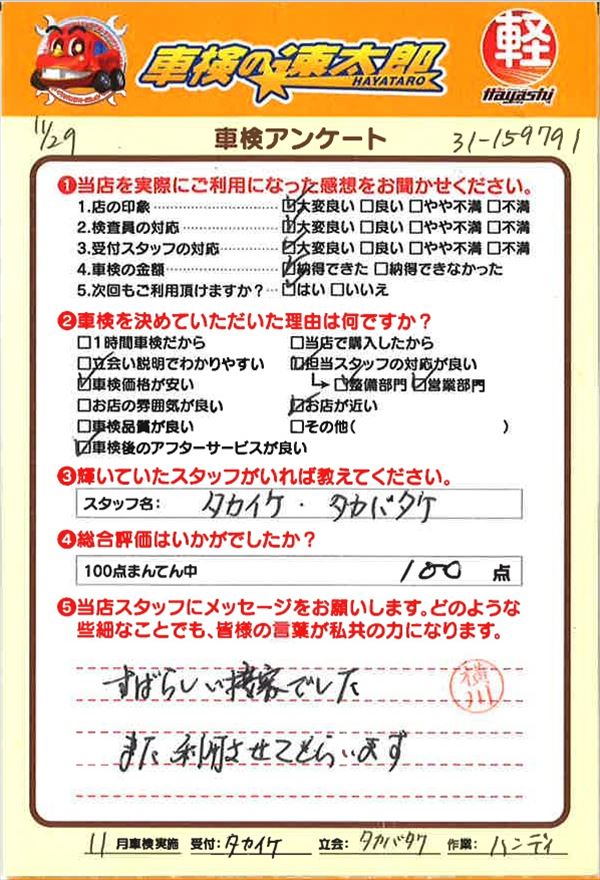 車検の速太郎
HAYATARO
軽
Hayashi
11/29
車検アンケート
31-159791
①当店を実際にご利用になった感想をお聞かせください。
1.店の印象 ☑大変良い □良い □やや不満 □不満
2.検査員の対応 ☑大変良い □良い □やや不満 □不満
3.受付スタッフの対応 ☑大変良い □良い □やや不満 □不満
4.車検の金額 ☑納得できた □納得できなかった
5.次回もご利用頂けますか？ ☑はい □いいえ
②車検を決めていただいた理由は何ですか？
□1時間車検だから □当店で購入したから
□立会い説明でわかりやすい ☑担当スタッフの対応が良い
☑車検価格が安い ☑整備部門 ☑営業部門
□お店の雰囲気が良い ☑お店が近い
□車検品質が良い □その他( )
☑車検後のアフターサービスが良い
③輝いていたスタッフがいれば教えてください。
スタッフ名： タカイケ・タカバタケ
④総合評価はいかがでしたか？
100点まんてん中 100 点
⑤当店スタッフにメッセージをお願いします。どのような
些細なことでも、皆様の言葉が私共の力になります。
すばらしい接客でした
横川
また利用させてもらいます
11月車検実施 受付:タカイケ 立会:タカバタケ 作業:ハンディ